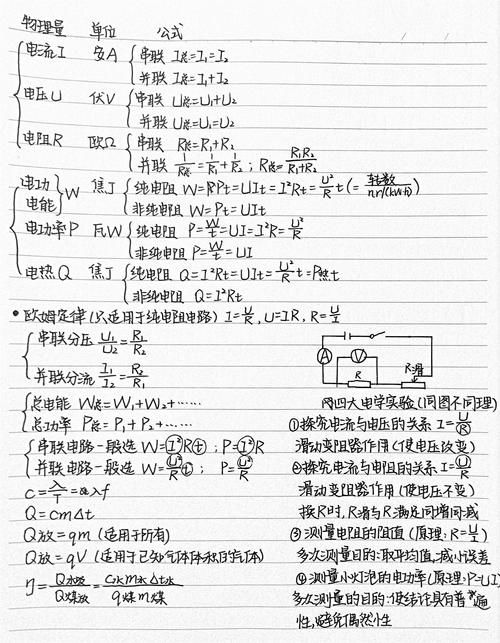 物理量 单位 公式
电流I 安A 串联 I总=I₁=I₂
并联 I总=I₁+I₂
电压U 伏V 串联 U总=U₁+U₂
并联 U总=U₁=U₂
电阻R 欧Ω 串联 R总=R₁+R₂
并联 1/R总=1/R₁+1/R₂ ; R总=R₁R₂/(R₁+R₂)
电功 电能 W 焦J 纯电阻 W=Pt=UIt=I²Rt=U²/R t (= 转数/nr/(kW·h))
非纯电阻 W=Pt=UIt
电功率P 瓦W 纯电阻 P=W/t=UI=I²R=U²/R
非纯电阻 P=W/t=UI
电热Q 焦J 纯电阻 Q=I²Rt=UIt=U²/R t=P热t
非纯电阻 Q=I²Rt
• 欧姆定律(只适用于纯电阻电路) I=U/R, U=IR, R=U/I
串联分压 U₁/U₂=R₁/R₂
并联分流 I₁/I₂=R₂/R₁
A V R R滑
总电能 W总=W₁+W₂+……
总功率 P总=P₁+P₂+……
串联电路一般选 W=I²Rt ; P=I²R
并联电路一般选 W=U²/R t ; P=U²/R
c=λ/T=λf
Q=cmΔt
Q放=qm (适用于所有)
Q放=qV (适用于已知气体体积的气体)
η=Q水吸/Q煤放=c水m水Δt水/q煤m煤
四大电学实验(同图不同理)
①探究电流与电压的关系 I=U/R
滑动变阻器作用(使电压改变)
②探究电流与电阻的关系 I=U/R
滑动变阻器作用(使电压不变)
换R时,R滑与R满足同增同减
③测量电阻的阻值(原理:R=U/I)
多次测量目的:取平均值,减小误差
④测量小灯泡的电功率(原理:P=UI)
多次测量的目的:使结论具有普遍
性,避免偶然性